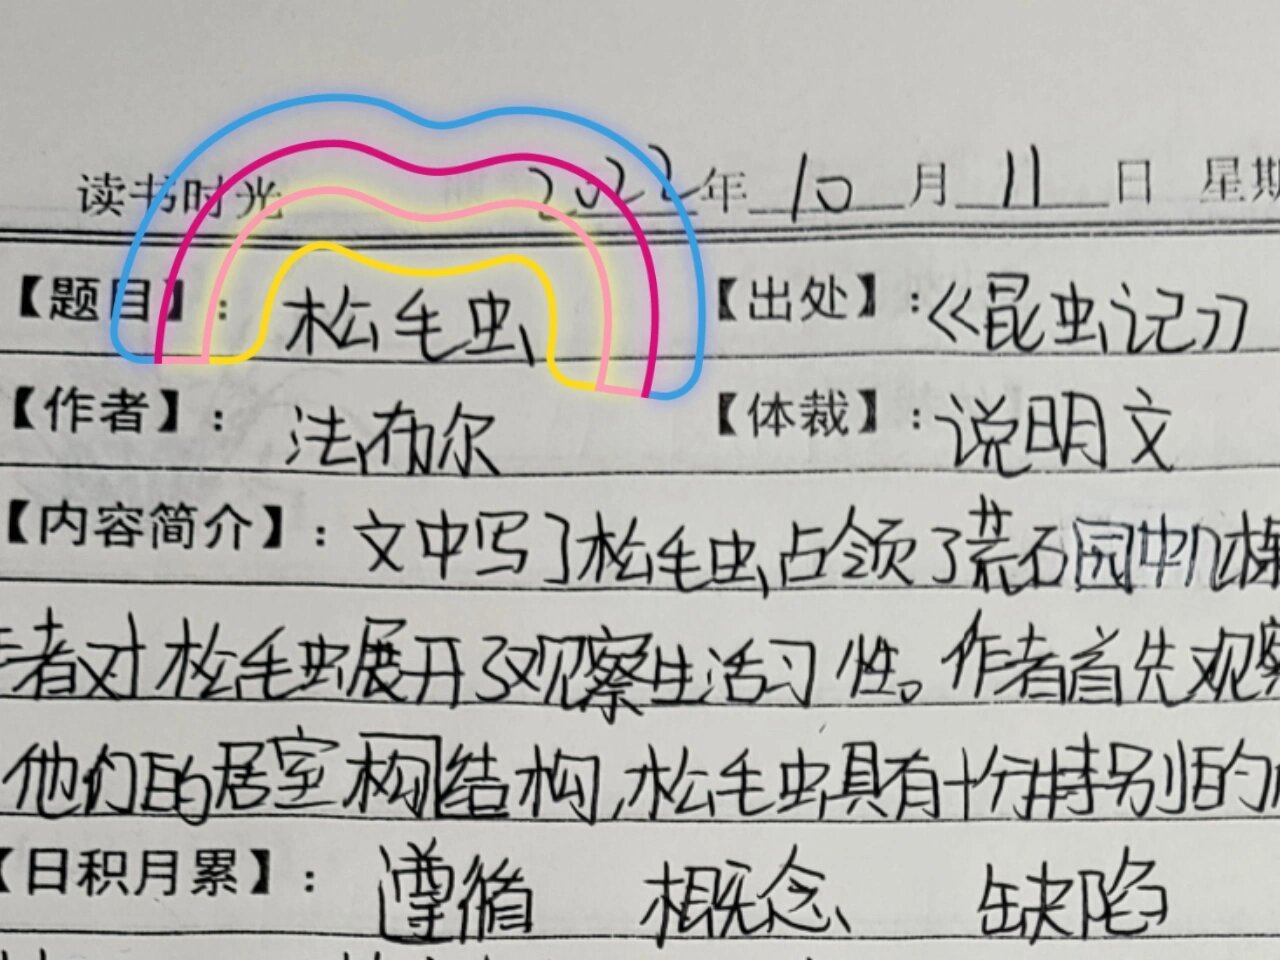 读书时光 2022年10月11日 星期
【题目】：松毛虫 【出处】：《昆虫记》
【作者】：法布尔 【体裁】：说明文
【内容简介】：文中写了松毛虫占领了荒石园中几株
者对松毛虫展开了观察生活习性。作者首先观察
他们的居室构结构，松毛虫具有十分特别的
【日积月累】：遵循 概念 缺陷